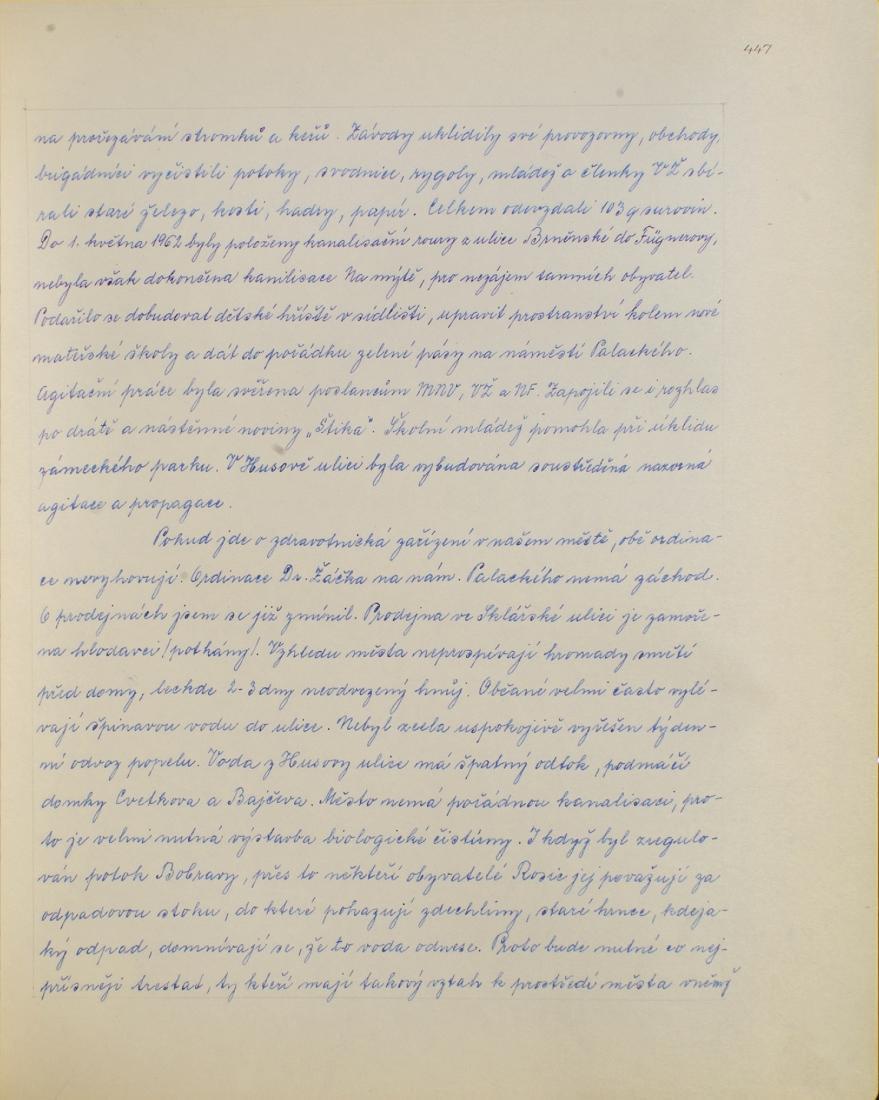 447
na prořezávání stromků a keřů. Závody uklidily své provozovny, obchody,
brigádníci vyčistili potoky, svodnice, rygoly, mládež a členky VŽ sbí-
rali staré železo, kosti, hadry, papír. Celkem odevzdali 103 q surovin.
Do 1. května 1962 byly položeny kanalisační roury z ulice Brněnské do Fügnerovy,
nebyla však dokončena kanilisace Na mýtě, pro nezájem tamních obyvatel.
Podařilo se dobudovat dětské hřiště v sídlišti, upravit prostranství kolem nové
mateřské školy a dát do pořádku zelené pásy na náměstí Palackého.
Agitační práce byla svěřena poslancům MNV, VŽ a NF. Zapojili se i rozhlas
po drátě a nástěnné noviny „Štika". Školní mládež pomohla při úklidu
zámeckého parku. V Husově ulici byla vybudována soustředěná názorná
agitace a propagace.
Pokud jde o zdravotnická zařízení v našem městě, obě ordina-
ce nevyhovují. Ordinace Dr. Žáčka na nám. Palackého nemá záchod.
O prodejnách jsem se již zmínil. Prodejna ve Sklářské ulici je zamoře-
na hlodavci /potkány/. Vzhledu města neprospívají hromady smětí
před domy, leckde 2-3 dny neodvezený hnůj. Občané velmi často vylé-
vají špinavou vodu do ulice. Nebyl zcela uspokojivě vyřešen týden-
ní odvoz popelu. Voda z Husovy ulice má špatný odtok, podmáčí
domky Cvetkova a Bajčeva. Město nemá pořádnou kanalisaci, pro-
to je velmi nutná výstavba biologické čistírny. I když byl zregulo-
ván potok Bobravy, přes to někteří obyvatelé Rosic jej považují za
odpadovou stoku, do které pohazují zdechliny, staré hrnce, kdeja-
ký odpad, domnívají se, že to voda odnese. Proto bude nutné co nej-
přísněji trestat, ty kteří mají takový vztah k prostředí města v němž